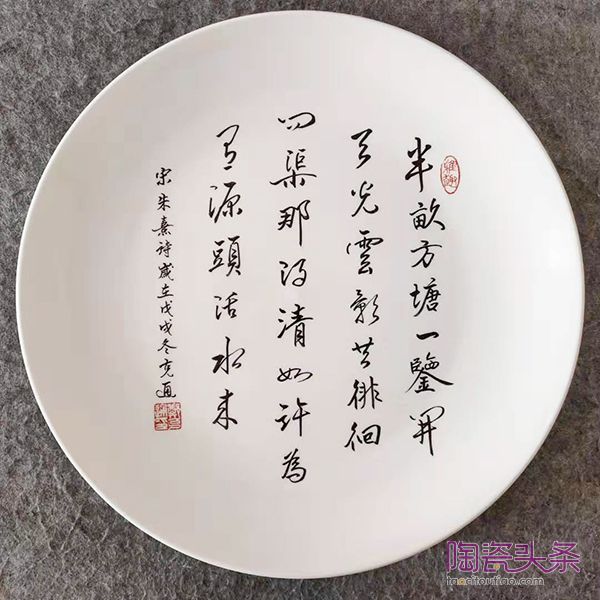 半畝方塘一鑒開
天光雲影共徘徊
問渠那得清如許為
有源頭活水來
宋朱熹詩歲在戊戌冬
陶瓷头条
taocitoutiao.com